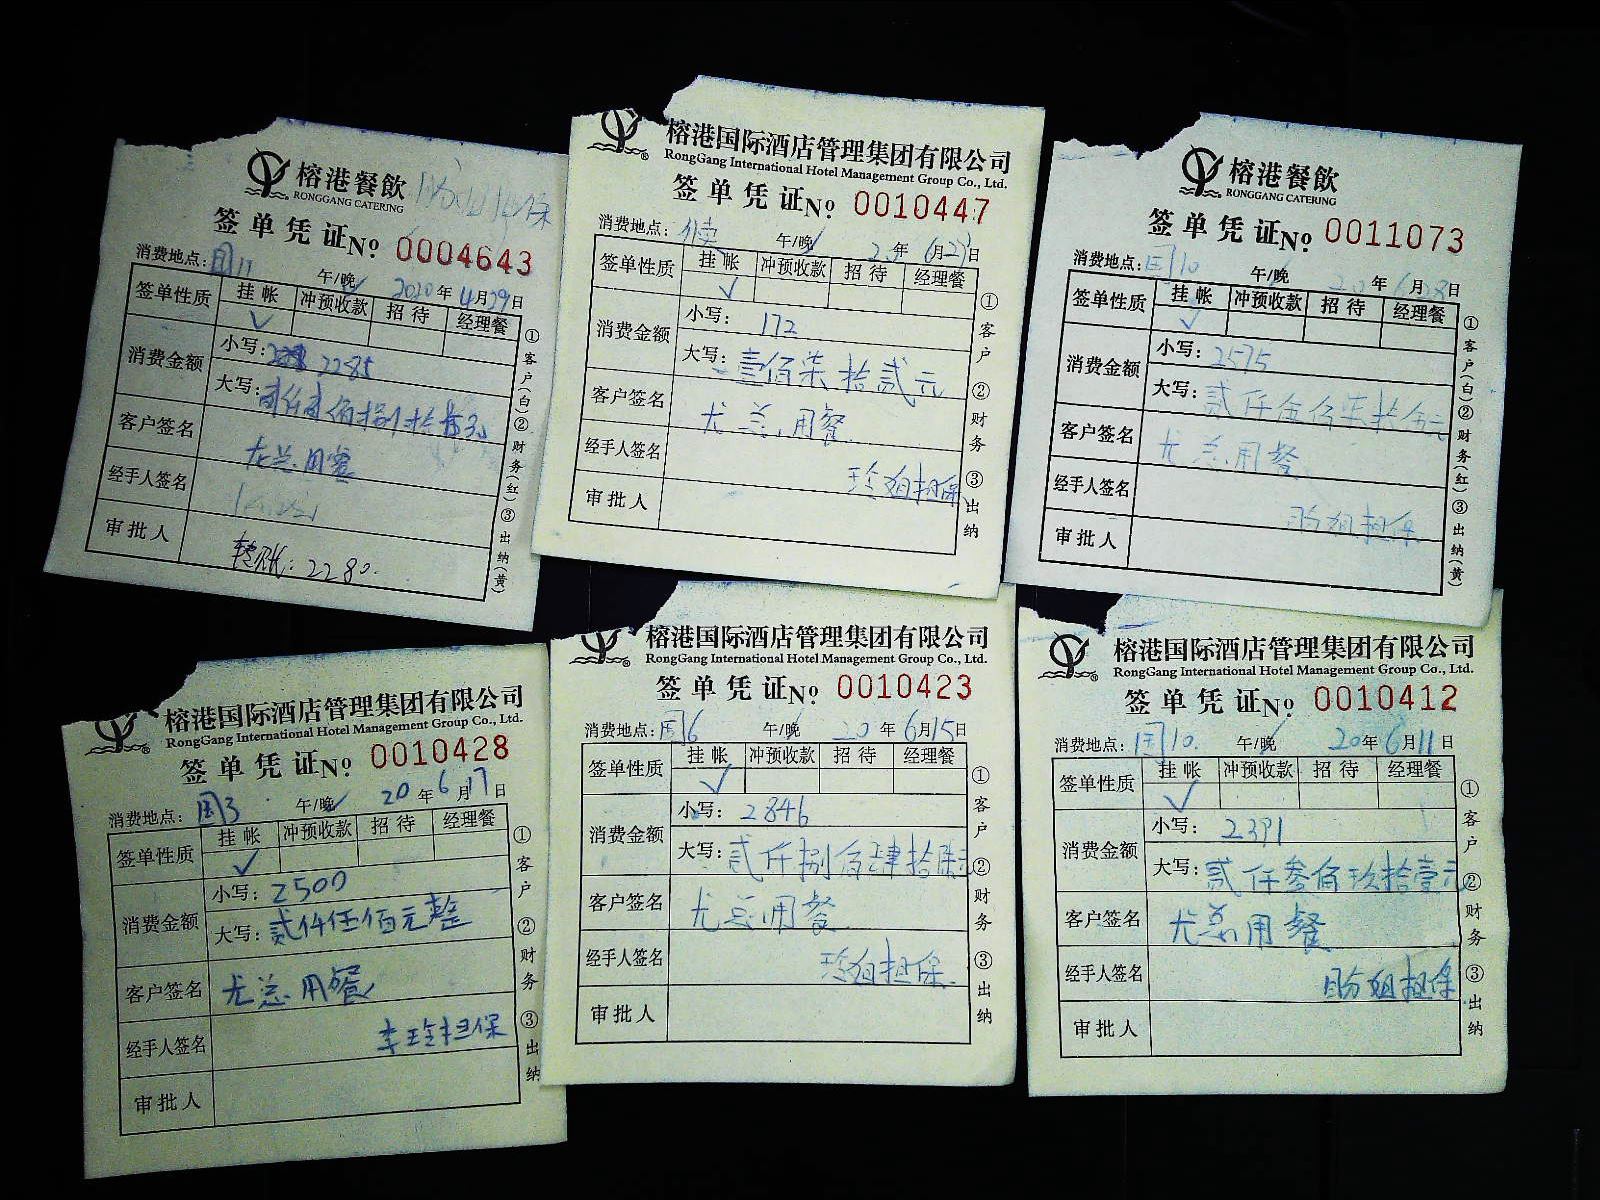 榕港餐飲
RONGGANG CATERING
签单凭证No 0004643
消费地点: 国11 午/晚 2020年4月29日
签单性质 挂帐 冲预收款 招待 经理餐
消费金额 小写: 2285
大写: 贰仟贰佰捌拾伍元
客户签名 尤总用餐
经手人签名
审批人 转账: 2280.
①客户(白)②财务(红)③出纳(黄)
榕港国际酒店管理集团有限公司
RongGang International Hotel Management Group Co., Ltd.
签单凭证No 0010447
消费地点: 午/晚 20年6月27日
签单性质 挂帐 冲预收款 招待 经理餐
消费金额 小写: 172
大写: 壹佰柒拾贰元
客户签名 尤总用餐
经手人签名 玲姐担保
审批人
①客户 ②财务 ③出纳
榕港餐飲
RONGGANG CATERING
签单凭证No 0011073
消费地点: 国10 午/晚 20年6月28日
签单性质 挂帐 冲预收款 招待 经理餐
消费金额 小写: 2575
大写: 贰仟伍佰柒拾伍元
客户签名 尤总用餐
经手人签名 盼姐担保
审批人
①客户(白)②财务(红)③出纳(黄)
榕港国际酒店管理集团有限公司
RongGang International Hotel Management Group Co., Ltd.
签单凭证No 0010428
消费地点: 国3 午/晚 20年6月17日
签单性质 挂帐 冲预收款 招待 经理餐
消费金额 小写: 2500
大写: 贰仟伍佰元整
客户签名 尤总用餐
经手人签名 李玲担保
审批人
①客户 ②财务 ③出纳
榕港国际酒店管理集团有限公司
RongGang International Hotel Management Group Co., Ltd.
签单凭证No 0010423
消费地点: 国6 午/晚 20年6月15日
签单性质 挂帐 冲预收款 招待 经理餐
消费金额 小写: 2846
大写: 贰仟捌佰肆拾陆元
客户签名 尤总用餐
经手人签名 玲姐担保
审批人
①客户 ②财务 ③出纳
榕港国际酒店管理集团有限公司
RongGang International Hotel Management Group Co., Ltd.
签单凭证No 0010412
消费地点: 国10. 午/晚 20年6月11日
签单性质 挂帐 冲预收款 招待 经理餐
消费金额 小写: 2391
大写: 贰仟叁佰玖拾壹元
客户签名 尤总用餐
经手人签名 盼姐担保
审批人
①客户 ②财务 ③出纳